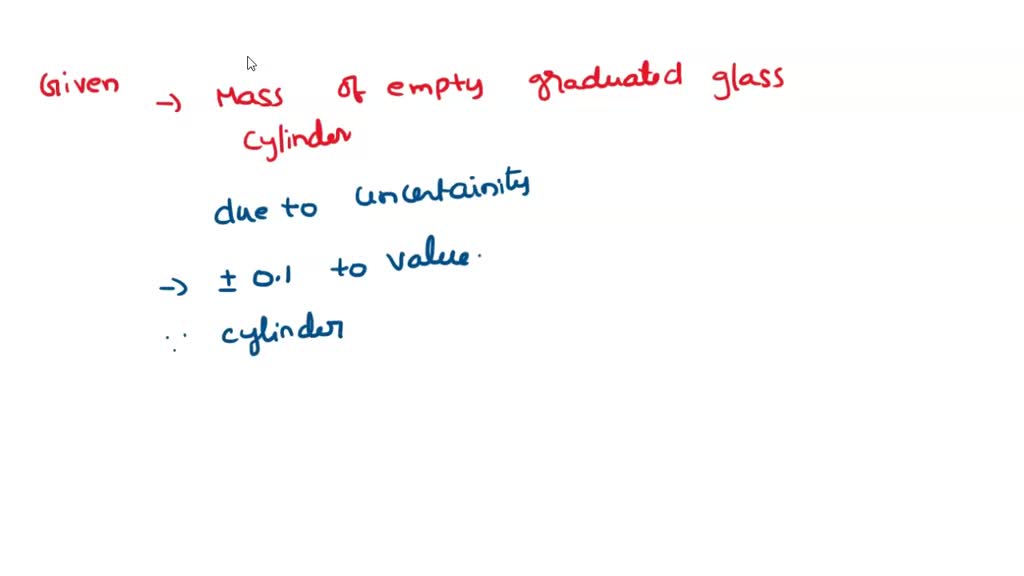 Given → Mass of empty graduated glass
cylinder
due to uncertainity
→ ± 0.1 to value.
∵ cylinder